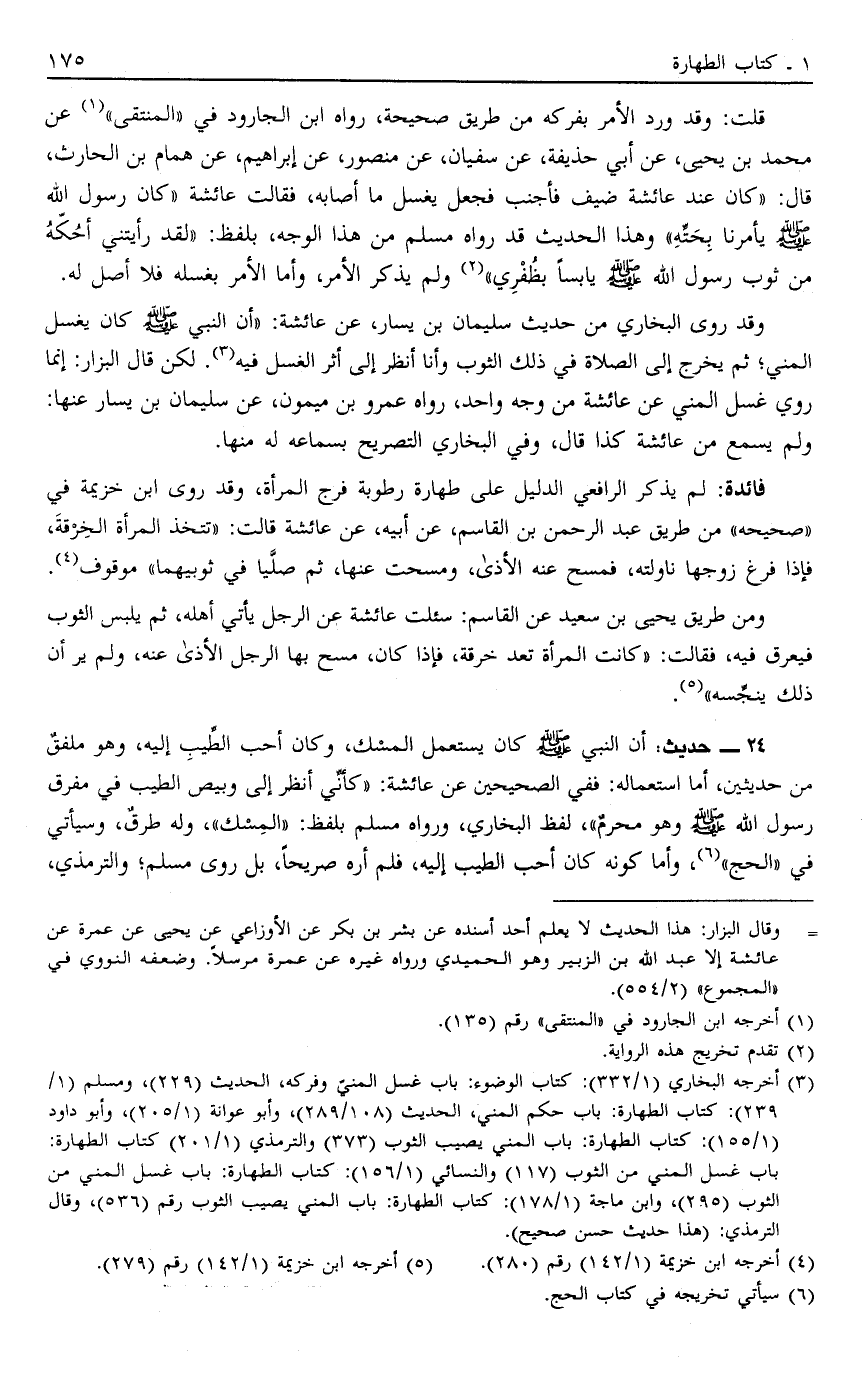 ١ ـ كتاب الطهارة ١٧٥
قلت: وقد ورد الأمر بفركه من طريق صحيحة، رواه ابن الجارود في «المنتقى»(١) عن
محمد بن يحيى، عن أبي حذيفة، عن سفيان، عن منصور، عن إبراهيم، عن همام بن الحارث،
قال: «كان عند عائشة ضيف فأجنب فجعل يغسل ما أصابه، فقالت عائشة «كان رسول الله
ﷺ يأمرنا بِحَتِّهِ» وهذا الحديث قد رواه مسلم من هذا الوجه، بلفظ: «لقد رأيتني أحُكّهُ
من ثوب رسول الله ﷺ يابساً بظُفْرِي»(٢) ولم يذكر الأمر، وأما الأمر بغسله فلا أصل له.
وقد روى البخاري من حديث سليمان بن يسار، عن عائشة: «أن النبي ﷺ كان يغسل
المني؛ ثم يخرج إلى الصلاة في ذلك الثوب وأنا أنظر إلى أثر الغسل فيه(٣). لكن قال البزار: إنما
روي غسل المني عن عائشة من وجه واحد، رواه عمرو بن ميمون، عن سليمان بن يسار عنها:
ولم يسمع من عائشة كذا قال، وفي البخاري التصريح بسماعه له منها.
فائدة: لم يذكر الرافعي الدليل على طهارة رطوبة فرج المرأة، وقد روى ابن خزيمة في
«صحيحه» من طريق عبد الرحمن بن القاسم، عن أبيه، عن عائشة قالت: «تتخذ المرأة الخِرْقةَ،
فإذا فرغ زوجها ناولته، فمسح عنه الأذىٰ، ومسحت عنها، ثم صلَّيا في ثوبيهما» موقوف(٤).
ومن طريق يحيى بن سعيد عن القاسم: سئلت عائشة عن الرجل يأتي أهله، ثم يلبس الثوب
فيعرق فيه، فقالت: «كانت المرأة تعد خرقة، فإذا كان، مسح بها الرجل الأذىٰ عنه، ولم ير أن
ذلك ينجِّسه»(٥).
٢٤ ـ حديث: أن النبي ﷺ كان يستعمل المسْك، وكان أحب الطِّيبِ إليه، وهو ملفقٌ
من حديثين، أما استعماله: ففي الصحيحين عن عائشة: «كأنّي أنظر إلى وبيص الطيب في مفرق
رسول الله ﷺ وهو محرمٌ»، لفظ البخاري، ورواه مسلم بلفظ: «المِسْك»، وله طرقٌ، وسيأتي
في «الحج»(٦)، وأما كونه كان أحب الطيب إليه، فلم أره صريحاً، بل روى مسلم؛ والترمذي،
= وقال البزار: هذا الحديث لا يعلم أحد أسنده عن بشر بن بكر عن الأوزاعي عن يحيى عن عمرة عن
عائشة إلا عبد الله بن الزبير وهو الحميدي ورواه غيره عن عمرة مرسلاً. وضعفه النووي في
«المجموع» (٢/ ٥٥٤).
(١) أخرجه ابن الجارود في «المنتقى» رقم (١٣٥).
(٢) تقدم تخريج هذه الرواية.
(٣) أخرجه البخاري (١/ ٣٣٢): كتاب الوضوء: باب غسل المنيّ وفركه، الحديث (٢٢٩)، ومسلم (١/
٢٣٩): كتاب الطهارة: باب حكم المني، الحديث (١٠٨/ ٢٨٩)، وأبو عوانة (١/ ٢٠٥)، وأبو داود
(١/ ١٥٥): كتاب الطهارة: باب المني يصيب الثوب (٣٧٣) والترمذي (١/ ٢٠١) كتاب الطهارة:
باب غسل المني من الثوب (١١٧) والنسائي (١/ ١٥٦): كتاب الطهارة: باب غسل المني من
الثوب (٢٩٥)، وابن ماجة (١/ ١٧٨): كتاب الطهارة: باب المني يصيب الثوب رقم (٥٣٦)، وقال
الترمذي: (هذا حديث حسن صحيح).
(٤) أخرجه ابن خزيمة (١/ ١٤٢) رقم (٢٨٠). (٥) أخرجه ابن خزيمة (١/ ١٤٢) رقم (٢٧٩).
(٦) سيأتي تخريجه في كتاب الحج.